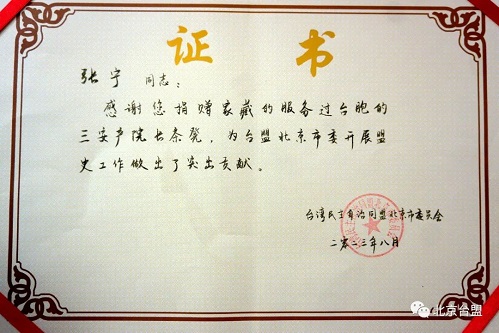 证书
张宁 同志:
感谢您捐赠家藏的服务过台胞的
三安产院长条凳,为台盟北京市委开展盟
史工作做出了突出贡献。
台湾民主自治同盟北京市委员会
二〇二三年八月
北京台盟